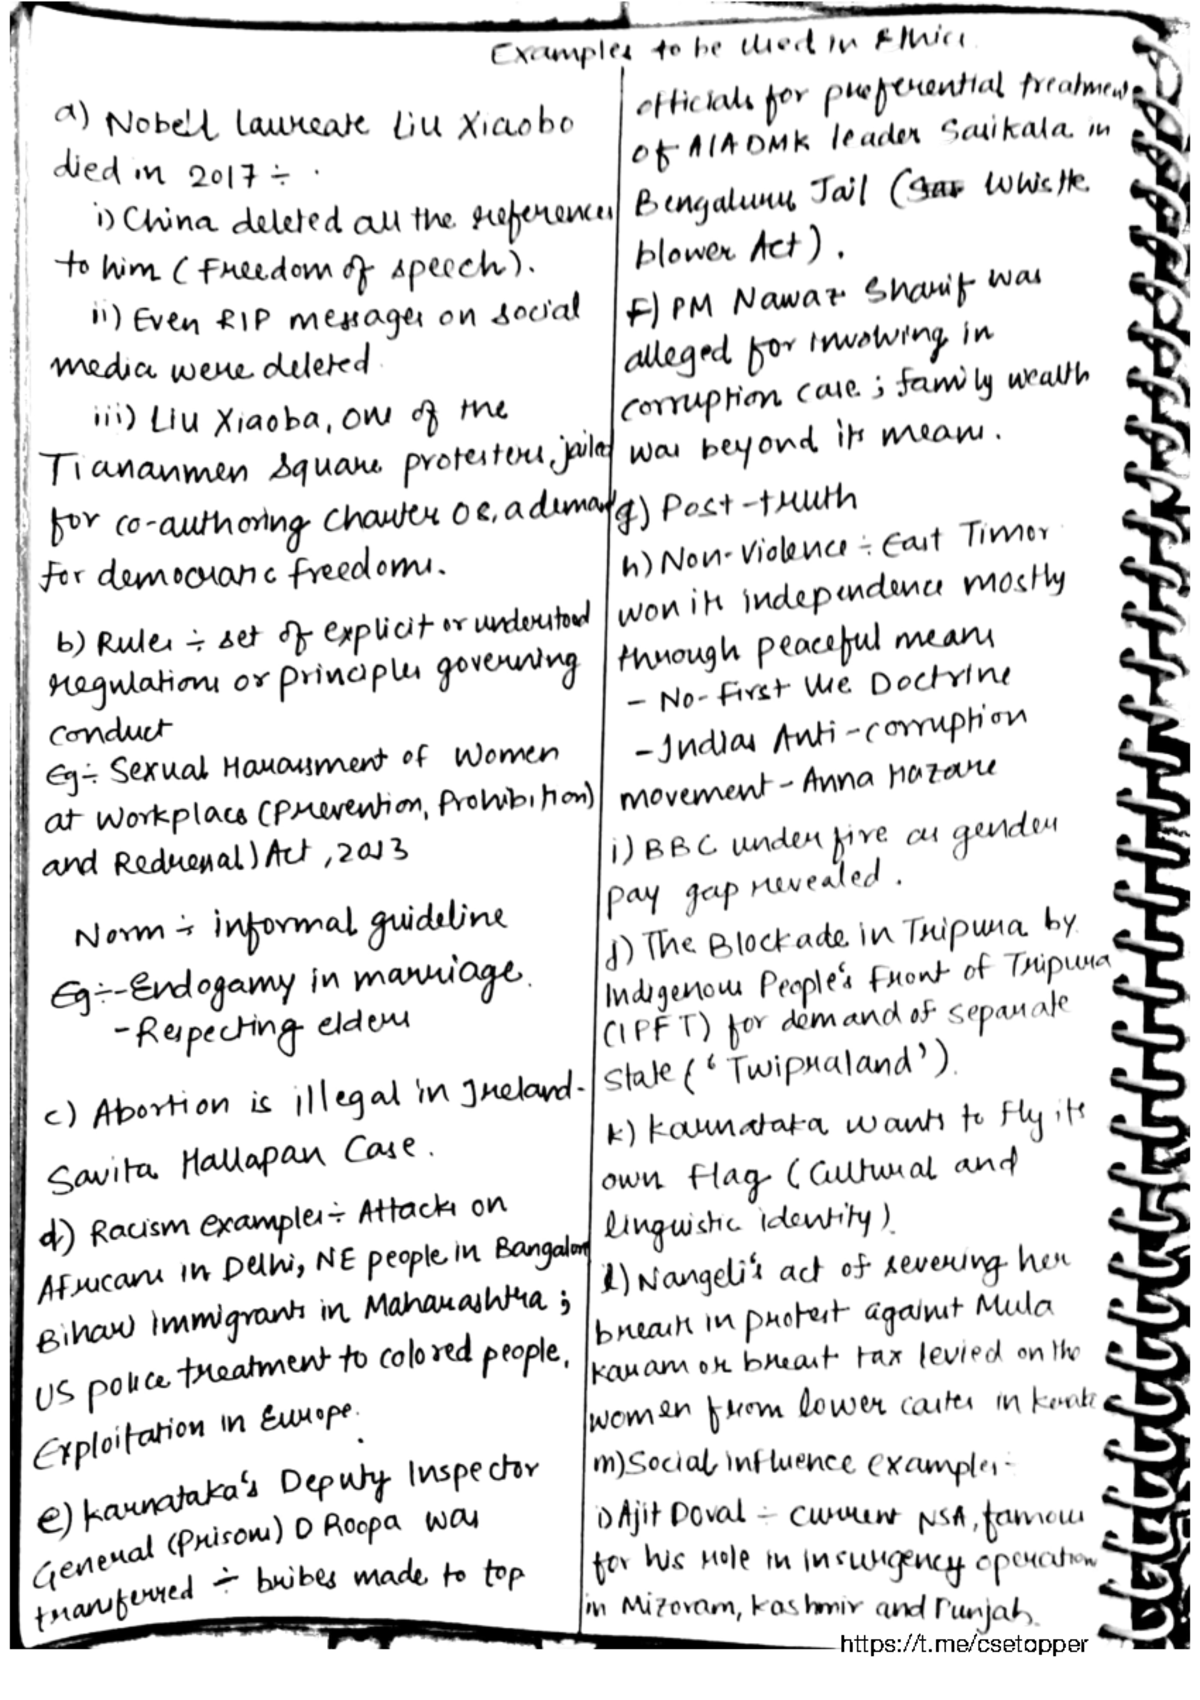 Examples to be Used in Ethics
a) Nobell laureate Liu Xiaobo
died in 2017 ÷
i) China deleted all the references
to him (Freedom of speech).
ii) Even RIP messages on social
media were deleted
iii) Liu Xiaoba, one of the
Tiananmen Square protesters, jailed
for co-authoring Charter 08, a demand
for democratic freedoms.
b) Rules ÷ set of explicit or understood
regulations or principles governing
conduct
Eg÷ Sexual Harassment of Women
at Workplace (Prevention, Prohibition)
and Redressal) Act, 2013
Norm ÷ informal guideline
Eg÷ -Endogamy in marriage.
-Respecting elders
c) Abortion is illegal in Ireland-
Savita Hallapan Case.
d) Racism examples÷ Attacks on
Africans in Delhi, NE people in Bangalore
Bihari immigrants in Maharashtra;
US police treatment to colored people,
Exploitation in Europe.
e) Karnataka's Deputy Inspector
General (Prisons) D Roopa was
transferred ÷ bribes made to top
officials for preferential treatment
of AIADMK leader Sasikala in
Bengaluru Jail (Whistle
blower Act).
F) PM Nawaz Sharif was
alleged for involving in
corruption case; family wealth
was beyond its means.
g) Post-truth
h) Non-Violence ÷ East Timor
won its independence mostly
through peaceful means
- No-First Use Doctrine
- Indias Anti-corruption
movement - Anna Hazare
i) BBC under fire as gender
pay gap revealed.
j) The Blockade in Tripura by
Indigenous People's Front of Tripura
(IPFT) for demand of separate
State ('Twipraland').
k) Karnataka wants to fly its
own flag (Cultural and
linguistic identity)
l) Nangeli's act of severing her
breasts in protest against Mula
karam or breast tax levied on the
women from lower castes in Kerala
m) Social influence examples-
i) Ajit Doval ÷ current NSA, famous
for his role in insurgency operation
in Mizoram, Kashmir and Punjab.
https://t.me/csetopper